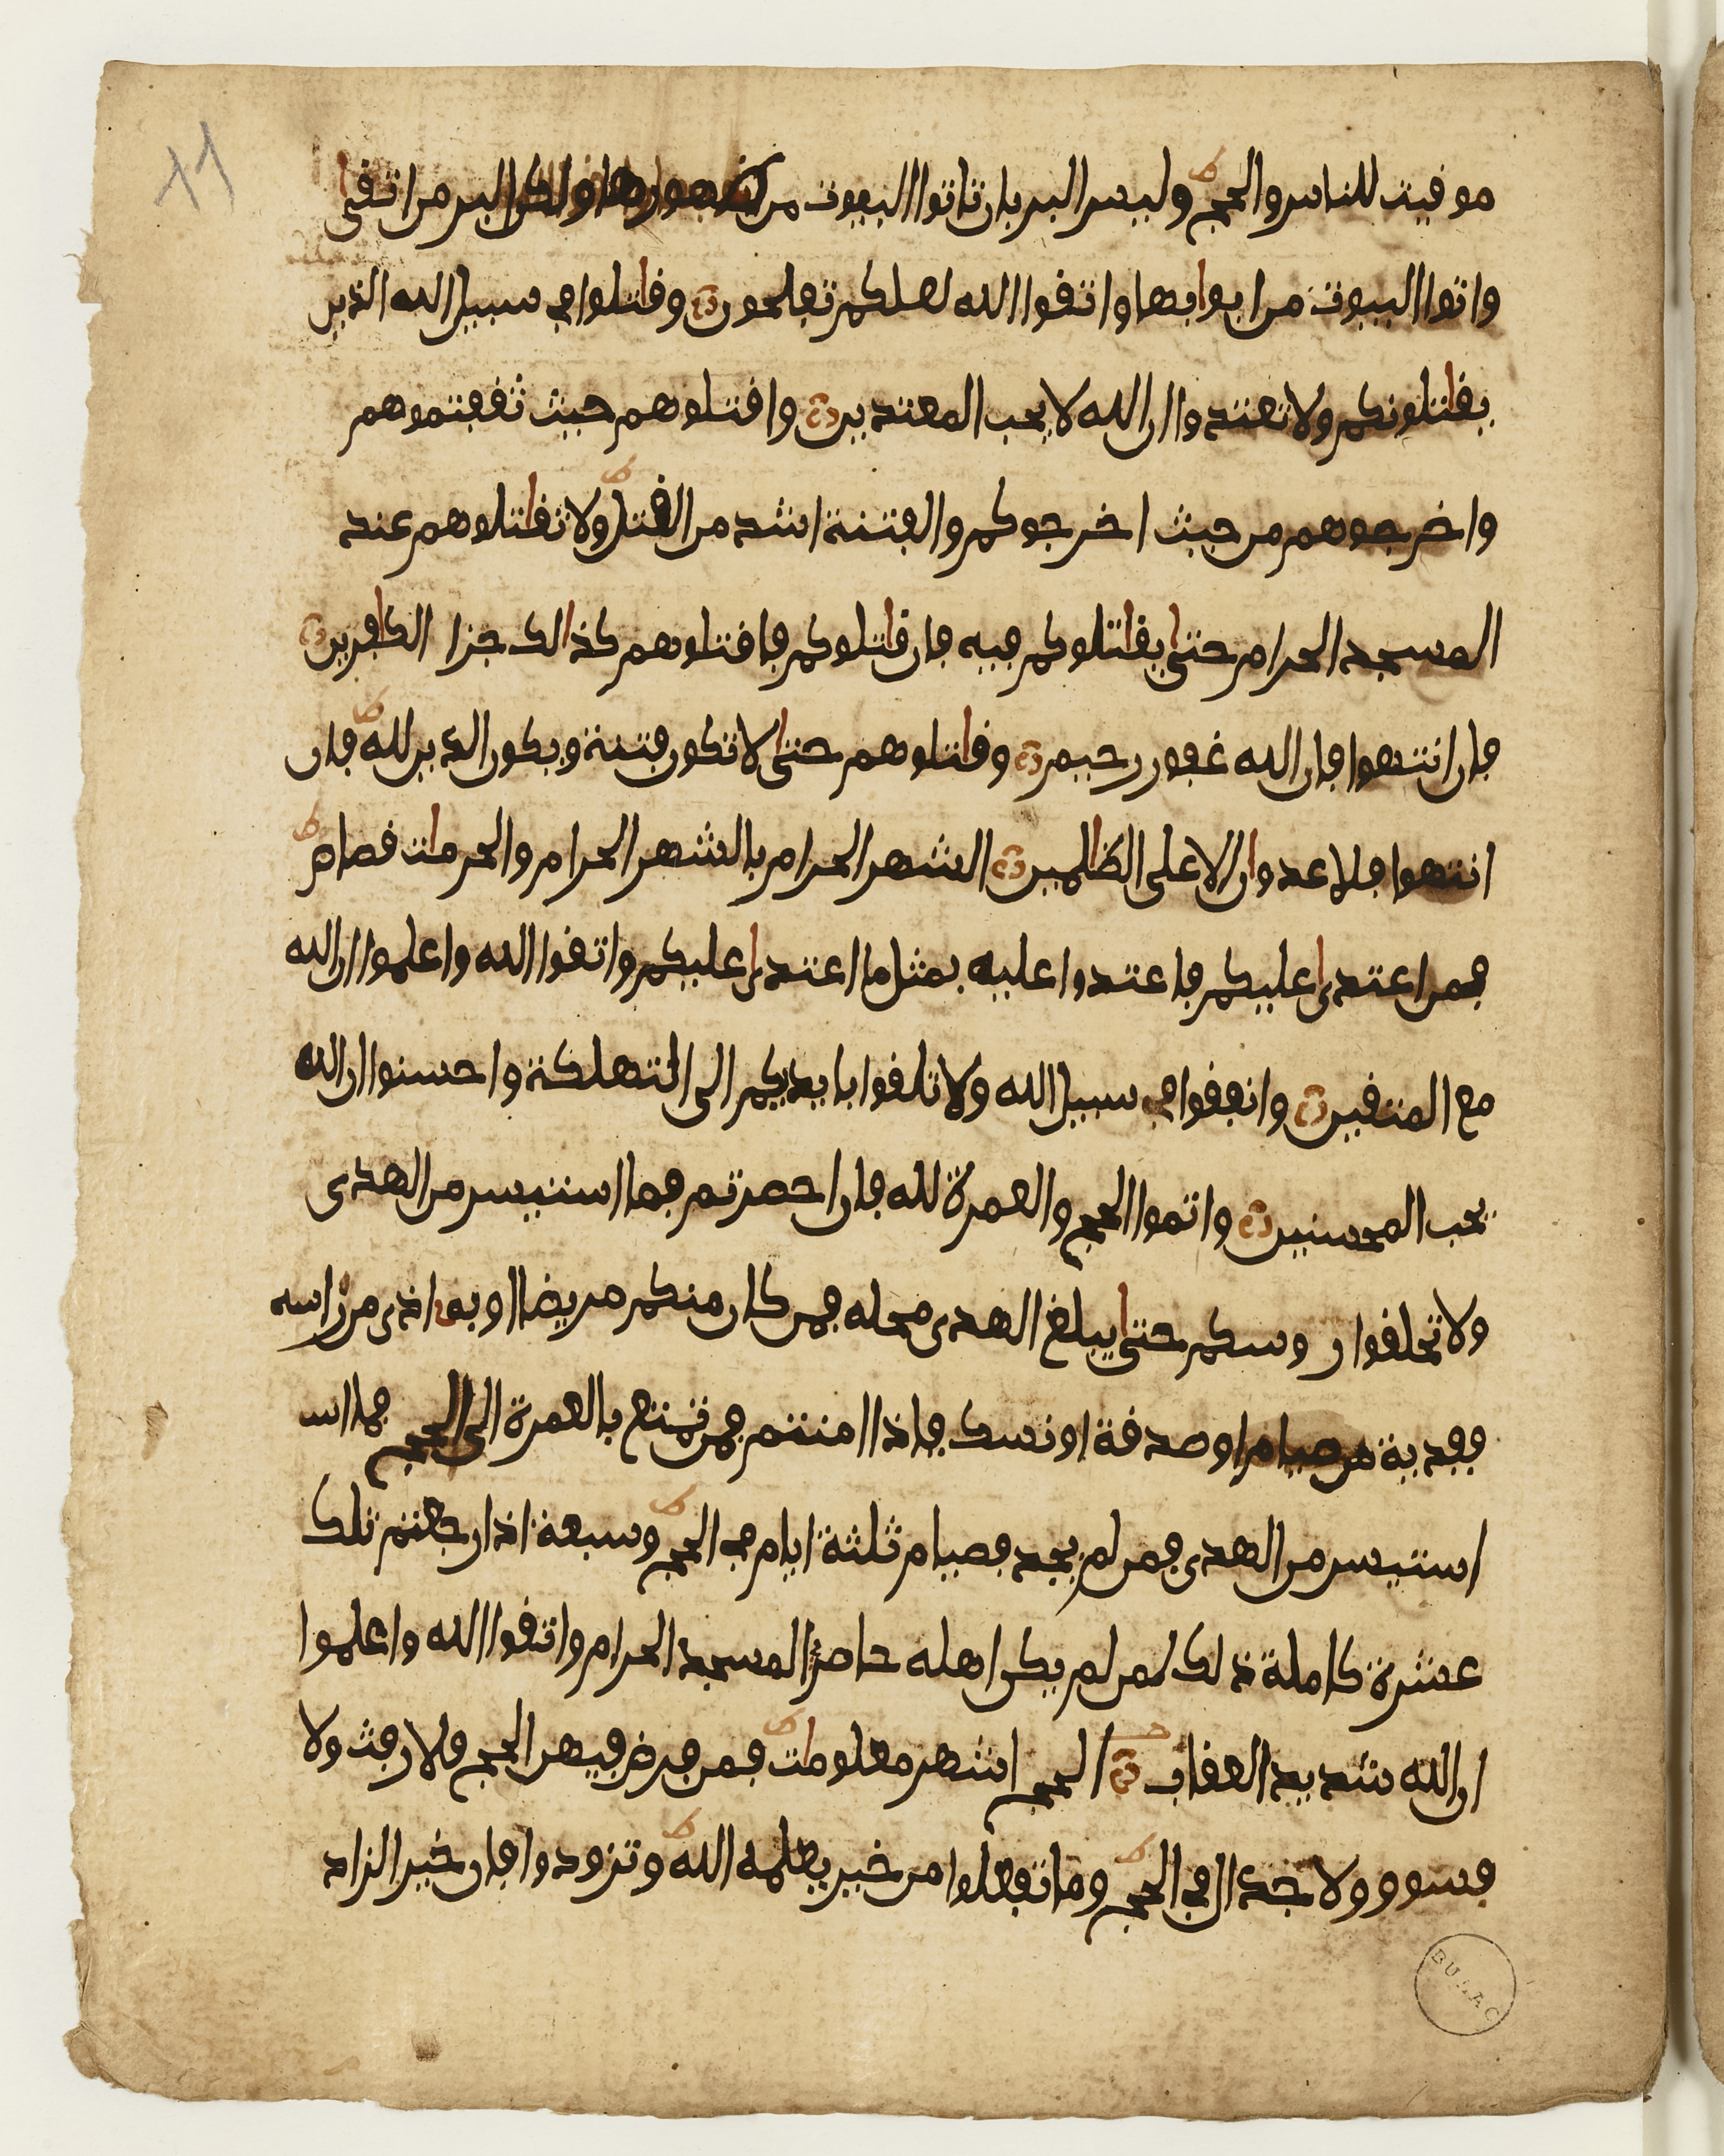 ١١
موقيت للناس والحج ط وليس البر بان تاتوا البيوت من ظهورها ولكن البر من اتقى
واتوا البيوت من ابوابها واتقوا الله لعلكم تفلحون وقاتلوا في سبيل الله الذين
يقاتلونكم ولا تعتدوا ان الله لا يحب المعتدين واقتلوهم حيث ثقفتموهم
واخرجوهم من حيث اخرجوكم والفتنة اشد من القتل ط ولا تقاتلوهم عند
المسجد الحرام حتى يقاتلوكم فيه فان قاتلوكم فاقتلوهم كذالك جزا الكافرين
فان انتهوا فان الله غفور رحيم وقاتلوهم حتى لا تكون فتنة ويكون الدين لله ط فان
انتهوا فلا عدوان الا على الظالمين الشهر الحرام بالشهر الحرام والحرمات قصاص ط
فمن اعتدى عليكم فاعتدوا عليه بمثل ما اعتدى عليكم واتقوا الله واعلموا ان الله
مع المتقين وانفقوا في سبيل الله ولا تلقوا بايديكم الى التهلكة واحسنوا ان الله
يحب المحسنين واتموا الحج والعمرة لله فان احصرتم فما استيسر من الهدى
ولا تحلقوا روسكم حتى يبلغ الهدى محله فمن كان منكم مريضا او به اذى من راسه
ففدية من صيام او صدقة او نسك فاذا امنتم فمن تمتع بالعمرة الى الحج فما اس
استيسر من الهدى فمن لم يجد فصيام ثلثة ايام في الحج ط وسبعة اذا رجعتم تلك
عشرة كاملة ذلك لمن لم يكن اهله حاضرى المسجد الحرام واتقوا الله واعلموا
ان الله شديد العقاب الحج اشهر معلومات ط فمن فرض فيهن الحج فلا رفث ولا
فسوق ولا جدال في الحج ط وما تفعلوا من خير يعلمه الله ط وتزودوا فان خير الزاد
BULAC